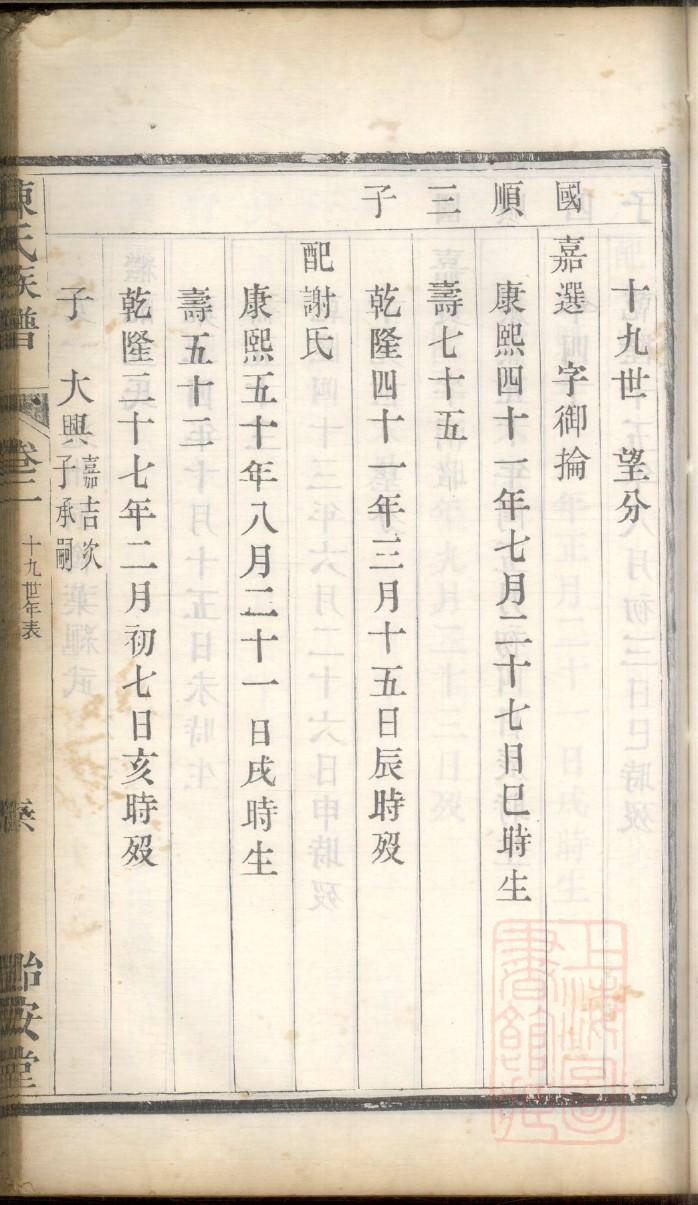 十九世 望分
國順三子
嘉選 字御掄
康熙四十一年七月二十七日巳時生
壽七十五
乾隆四十一年三月十五日辰時歿
配謝氏
康熙五十年八月二十一日戌時生
壽五十二
乾隆三十七年二月初七日亥時歿
子 大興 嘉吉次
子承嗣
陳氏族譜 卷二 十九世年表
怡安堂
上海圖書館藏